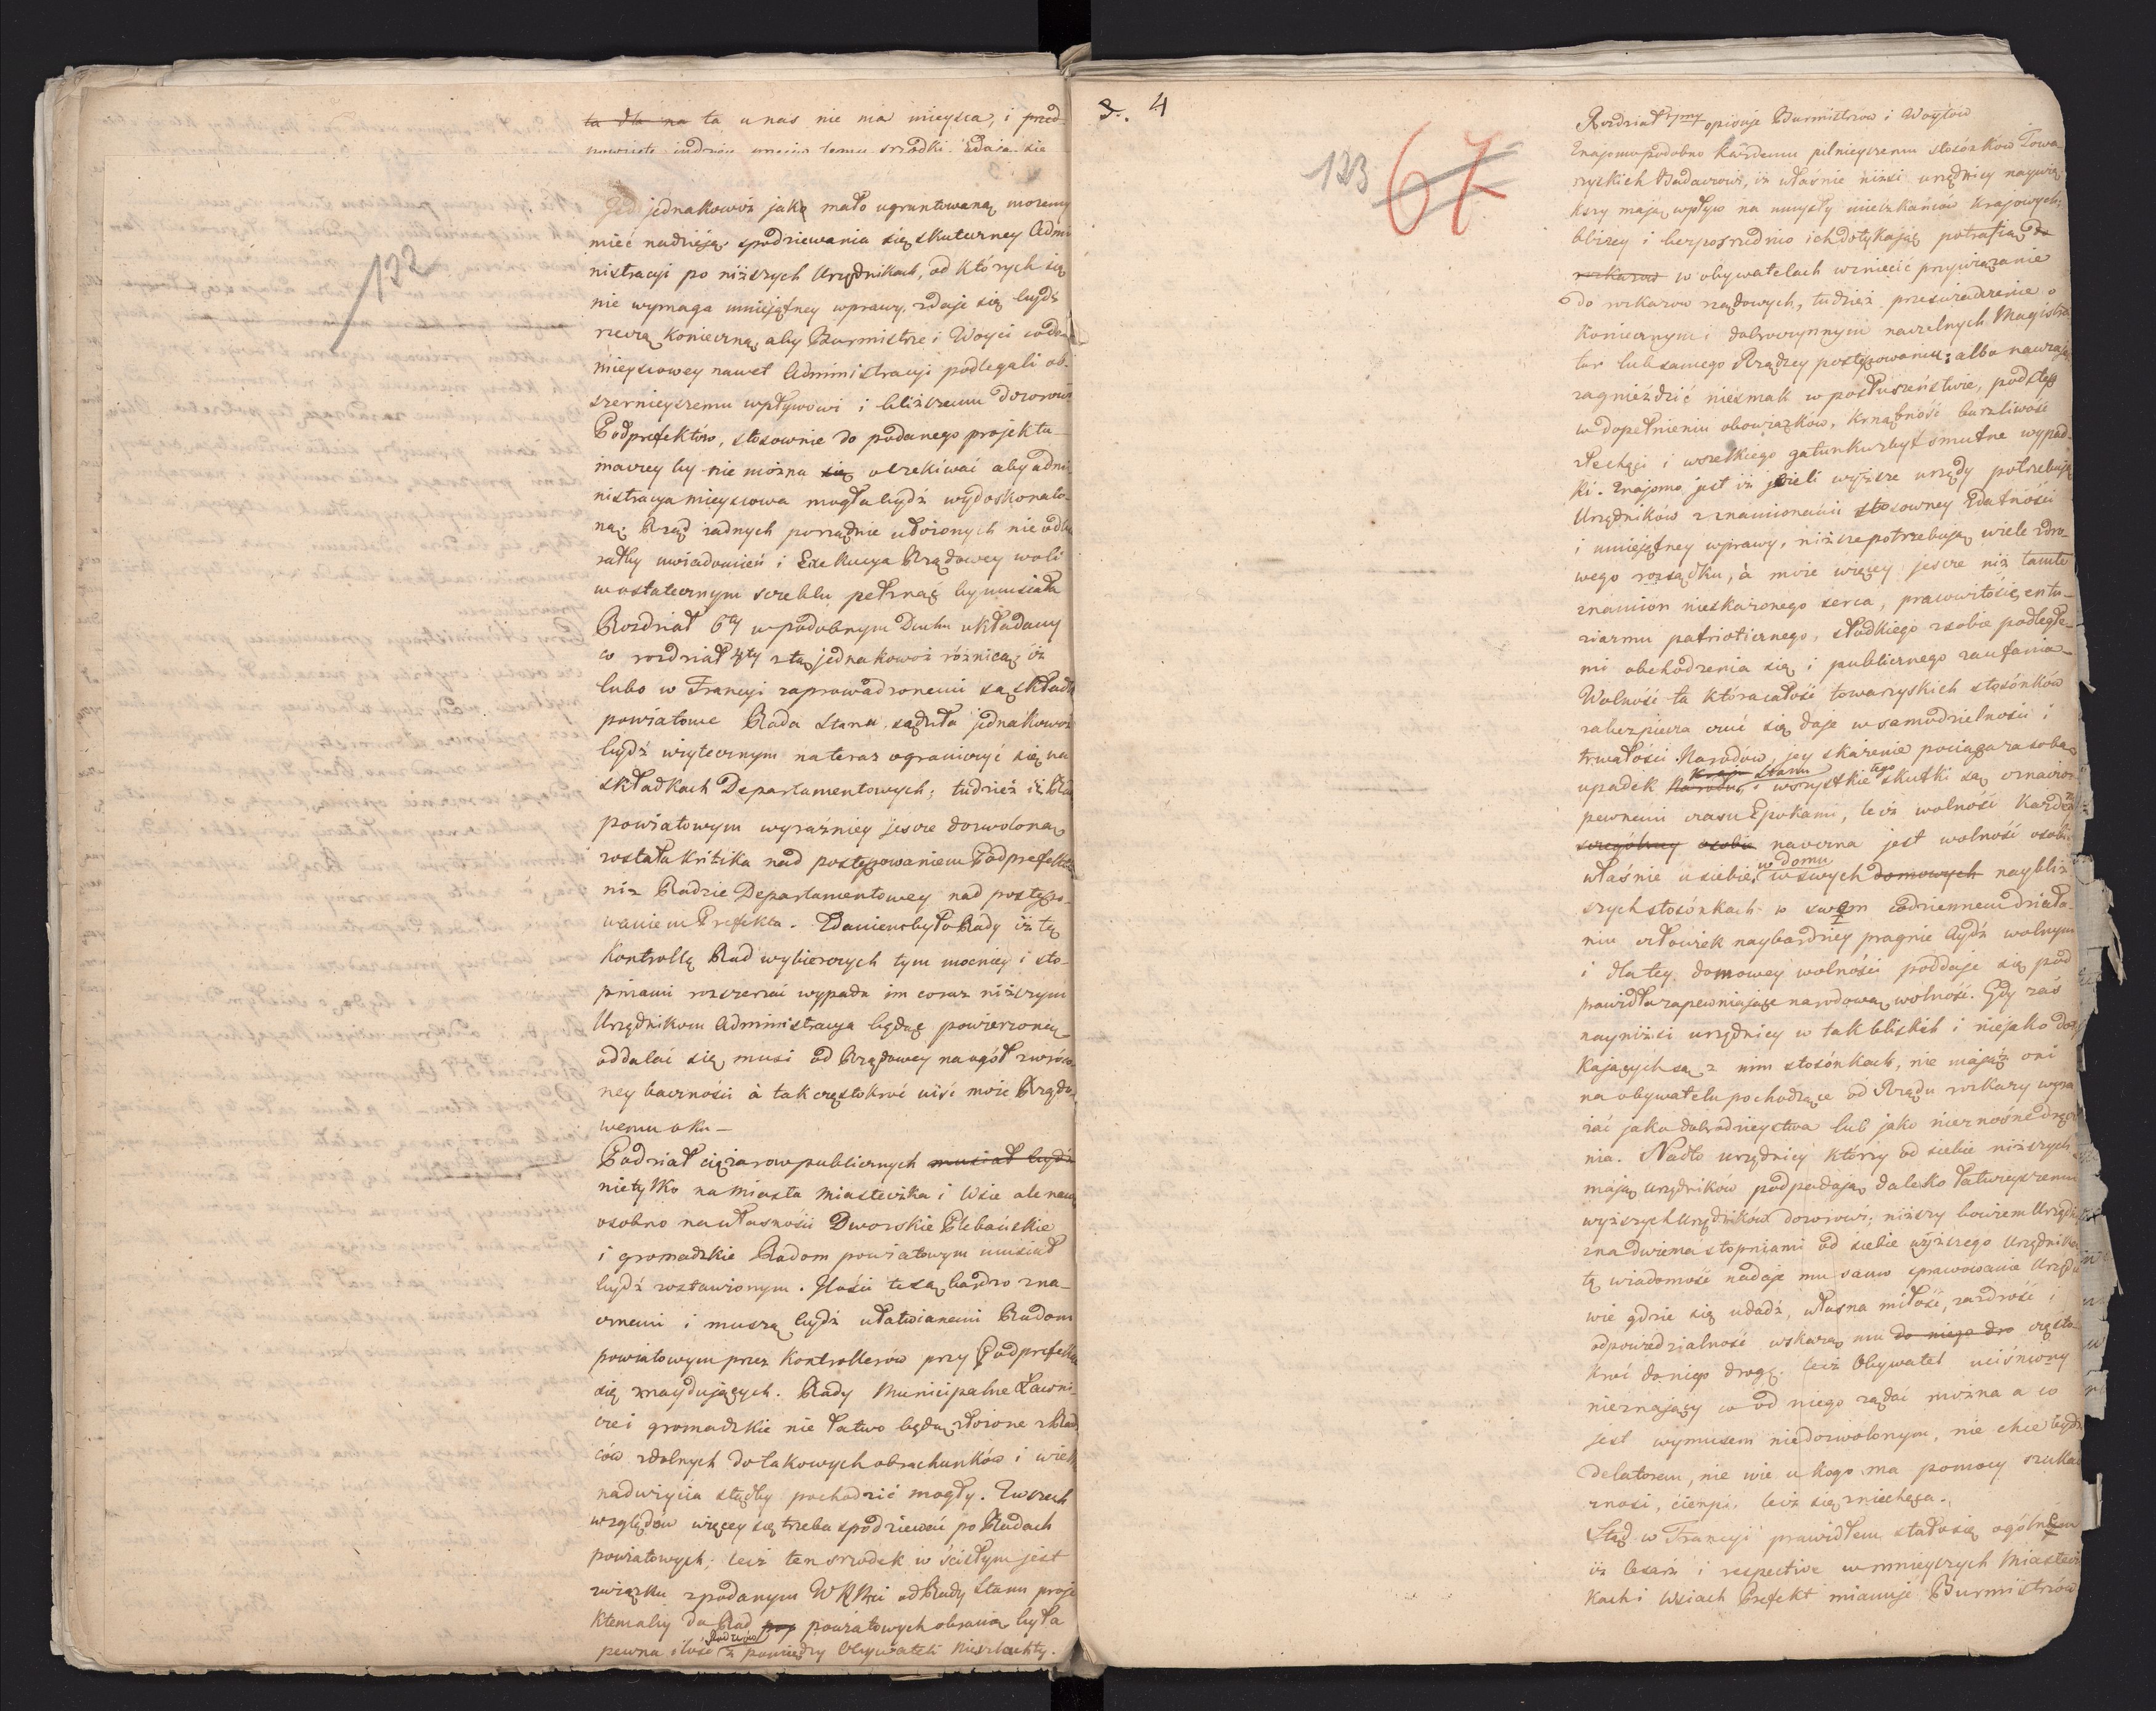 132
ta dla na ta u nas nie ma mieysca, i przed
środki. Zdaje się
jednakowoż jaką mało ugruntowaną możemy
mieć nadzieję spodziewania się skuteczney Admi
nistracyi po niższych Urzędnikach, od których się
nie wymaga umiejętney wprawy, zdaje się bydź
rzeczą konieczną, aby Burmistrze i Woyci co do
mieyscowey nawet Administracyi podlegali ob-
szernieyszemu wpływowi i bliższemu dozorowi
Podprefektów, stosownie do podanego projektu
inaczey by nie można się oczekiwać aby admi-
nistracya mieyscowa mogła bydź wydoskonalo-
ną. Rząd żadnych porządnie ułożonych nie odbie
rałby uwiadomień i Exekucya Rządowey woli
w ostatecznym szczeblu pełznąć by musiała
Rozdział 6ty w podobnym Duchu układany
co rozdział 4ty z tą jednakowoż różnicą, iż
lubo w Francyi zaprowadzonemi są składki
powiatowe Rada Stanu sądziła jednakowoż
bydź użytecznym na teraz ograniczyć się na
składkach Departamentowych; tudzież iż Rad
powiatowym wyraźniey jescze dozwoloną
została kritika nad postępowaniem Podprefekta
niż Radzie Departamentowey nad postępo-
waniem Prefekta. Zdaniem było Rady iż tę
kontrollę Rad wybierczych tym mocniey i sto-
pniami rozszerzać wypada im coraz niższym
Urzędnikom Administracya będąc powierzoną
oddalać się musi od Rządowey na ogół zwróco-
ney baczności à tak częstokroć uiść może Rządo-
wemu oku—
Podział ciężarow publicznych musiał bydź
nietylko na Miasta Miasteczka i Wsie ale nawet
osobno na własności Dworskie Plebańskie
i gromadzkie Radom powiatowym musiał
bydź zostawionym. Ilości te są bardzo zna-
cznemi i muszą bydź ułatwianemi Radom
powiatowym przez Kontrollerów przy Podprefekcie
się znaydujących. Rady Municipalne Ławni-
cze i gromadzkie nie łatwo będą złożone z Rad
ców zdolnych do takowych obrachunków i wiele
nadużycia stądby pochodzić mogły. Zwszech
względów więcey się trzeba spodziewać po Radach
powiatowych; lecz ten srzodek w ścisłym jest
związku z podanym WKMci od Rady Stanu proje
ktem aby do Rad pop powiatowych obraną była
pewna ilość Radzców z pomiędzy Obywateli Nieszlachty.
3. 4
133 67
Rozdział 7my opisuje Burmistrzow i Woytów
Znajomo podobno każdemu pilnieyszemu stosónków Towa-
rzyskich Badaczowi, iż właśnie niżsi urzędnicy naywię
kszy mają wpływ na umysły mieszkańców krajowych;
bliżey i bezposrzednio ich dotykając potrafią do
rozkazow w obywatelach wzniecić przywiązanie
do rozkazow rządowych, tudzież przeświadczenie o
koniecznym i dobroczynnym naczelnych Magistra
tur lub samego Rządzcy postępowaniu; albo nawzajem
zagnieździć niesmak w posłuszeństwie, podstęp
w dopełnieniu obowiązków, krnąbność burzliwość
złechęci i wszelkiego gatunku zbyt smutne wypad-
ki. Znajomo jest iż jeżeli wyższe urzędy potrzebują
Urzędników z znamionami stosowney zdatności
i umiejętney wprawy, niższe potrzebują wiele zdro-
wego rozsądku, à może więcey jescze niż tamte
znamion nieskażonego serca, prawowitości, entu-
ziazmu patrioticznego, słodkiego z sobie podległe-
mi obchodzenia się i publicznego zaufania—
Wolność ta która całość towarzyskich stosónków
zabezpiecza czuć się daje w samodzielności i
trwałości Narodów, jey skażenie pociąga za sobą
upadek Narodu, Kraju Stanu i wszystkie tego skutki są oznaczone
pewnemi czasu Epokami, lecz wolność każdem
szczególney osobie naoczna jest wolność osobi-
właśnie u siebie, w domu w swych domowych naybliż
szych stosónkach w swem codziennem działa-
niu człowiek naybardziey pragnie bydź wolnym
i dla tey domowey wolności poddaje się pod
prawidła zapewniające narodową wolność. Gdy zaś
nayniżsi urzędnicy w tak bliskich i niejako doty
kających są z nim stosónkach, nie mająż oni
na obywatelu pochodzące od Rządu rozkazy wyra
żać jako dobrodzieystwa lub jako nieznośne dręcze
nia. Nadto urzędnicy którzy od siebie niższych
mają urzędnikow podpadają daleko łatwieyszemu
wyższych Urzędników dozorowi; niższy bowiem Urzędnik
zna dwiema stopniami od siebie wyższego Urzędnika
tę wiadomość nadaje mu samo sprawowanie Urzędu
wie gdzie się udadź, własna miłość, zazdrość i
odpowiedzialność wskażą mu do niego dro często-
kroć do niego drogę. lecz Obywatel uciśniony
nieznający co od niego żądać można a co
jest wymusem niedozwolonym, nie chce bydź
delatorem, nie wie u kogo ma pomocy szukać
znosi, cierpi, lecz się zniechęca.
Stąd w Francyi prawidłem stało się ogólnem
iż Cesarz i respective w mnieyszych Miastecz
kach i Wsiach Prefekt mianuje Burmistrzów